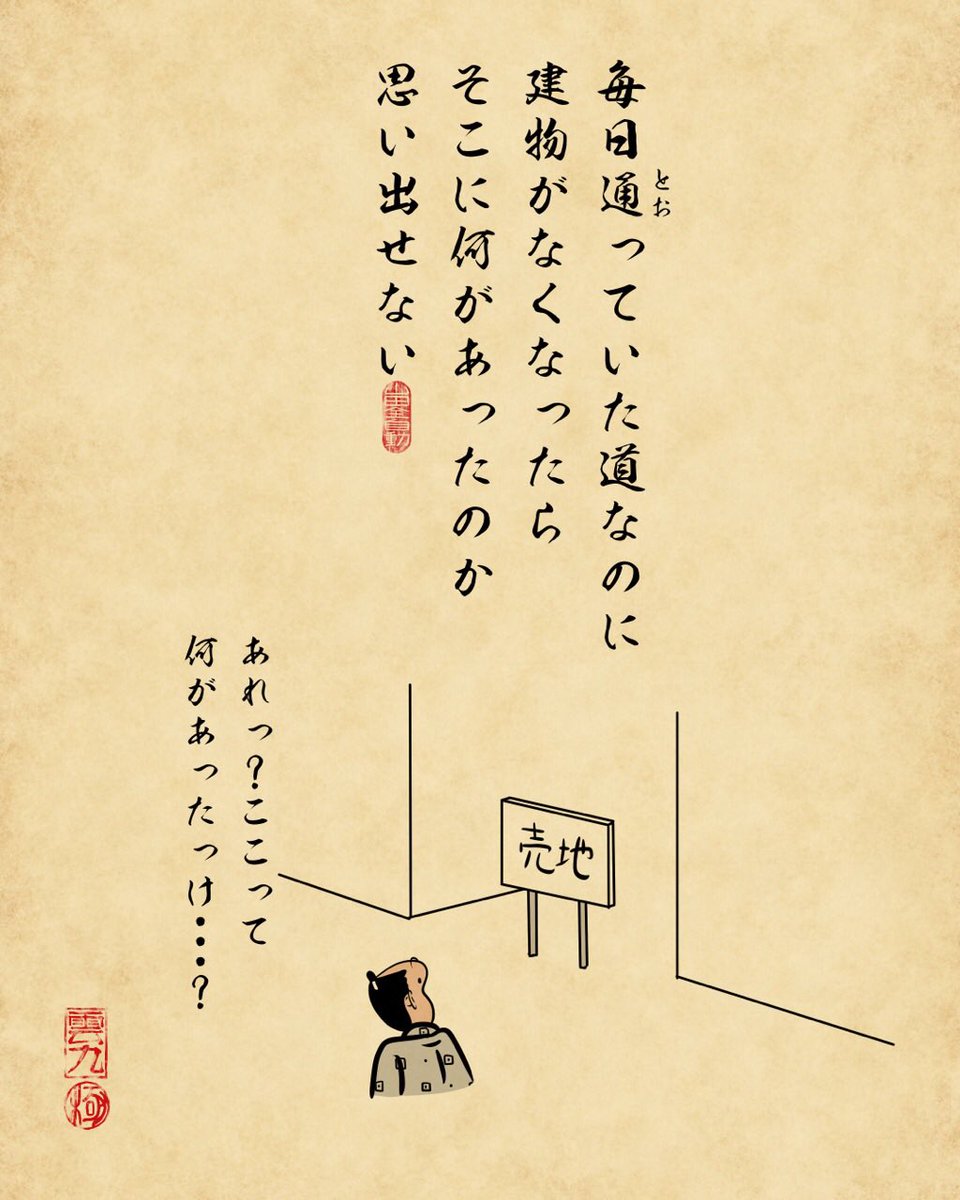 毎日通っていた道なのに
とお
建物がなくなったら
そこに何があったのか
思い出せない
あれっ？ここって
何があったっけ・・・？
売地